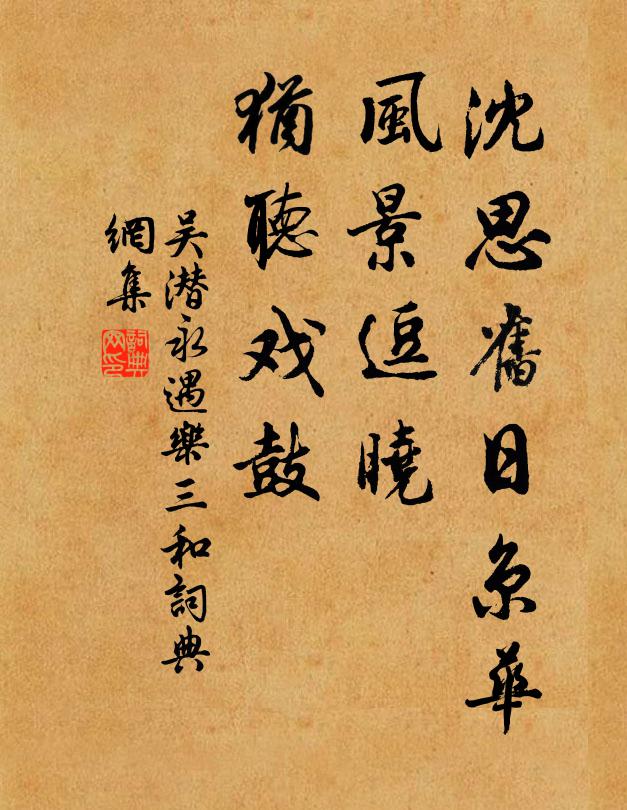 沈思舊日京華
風景逗曉
猶聽戏鼓
吴潜永遇樂三和詞典
網集
詞典網印